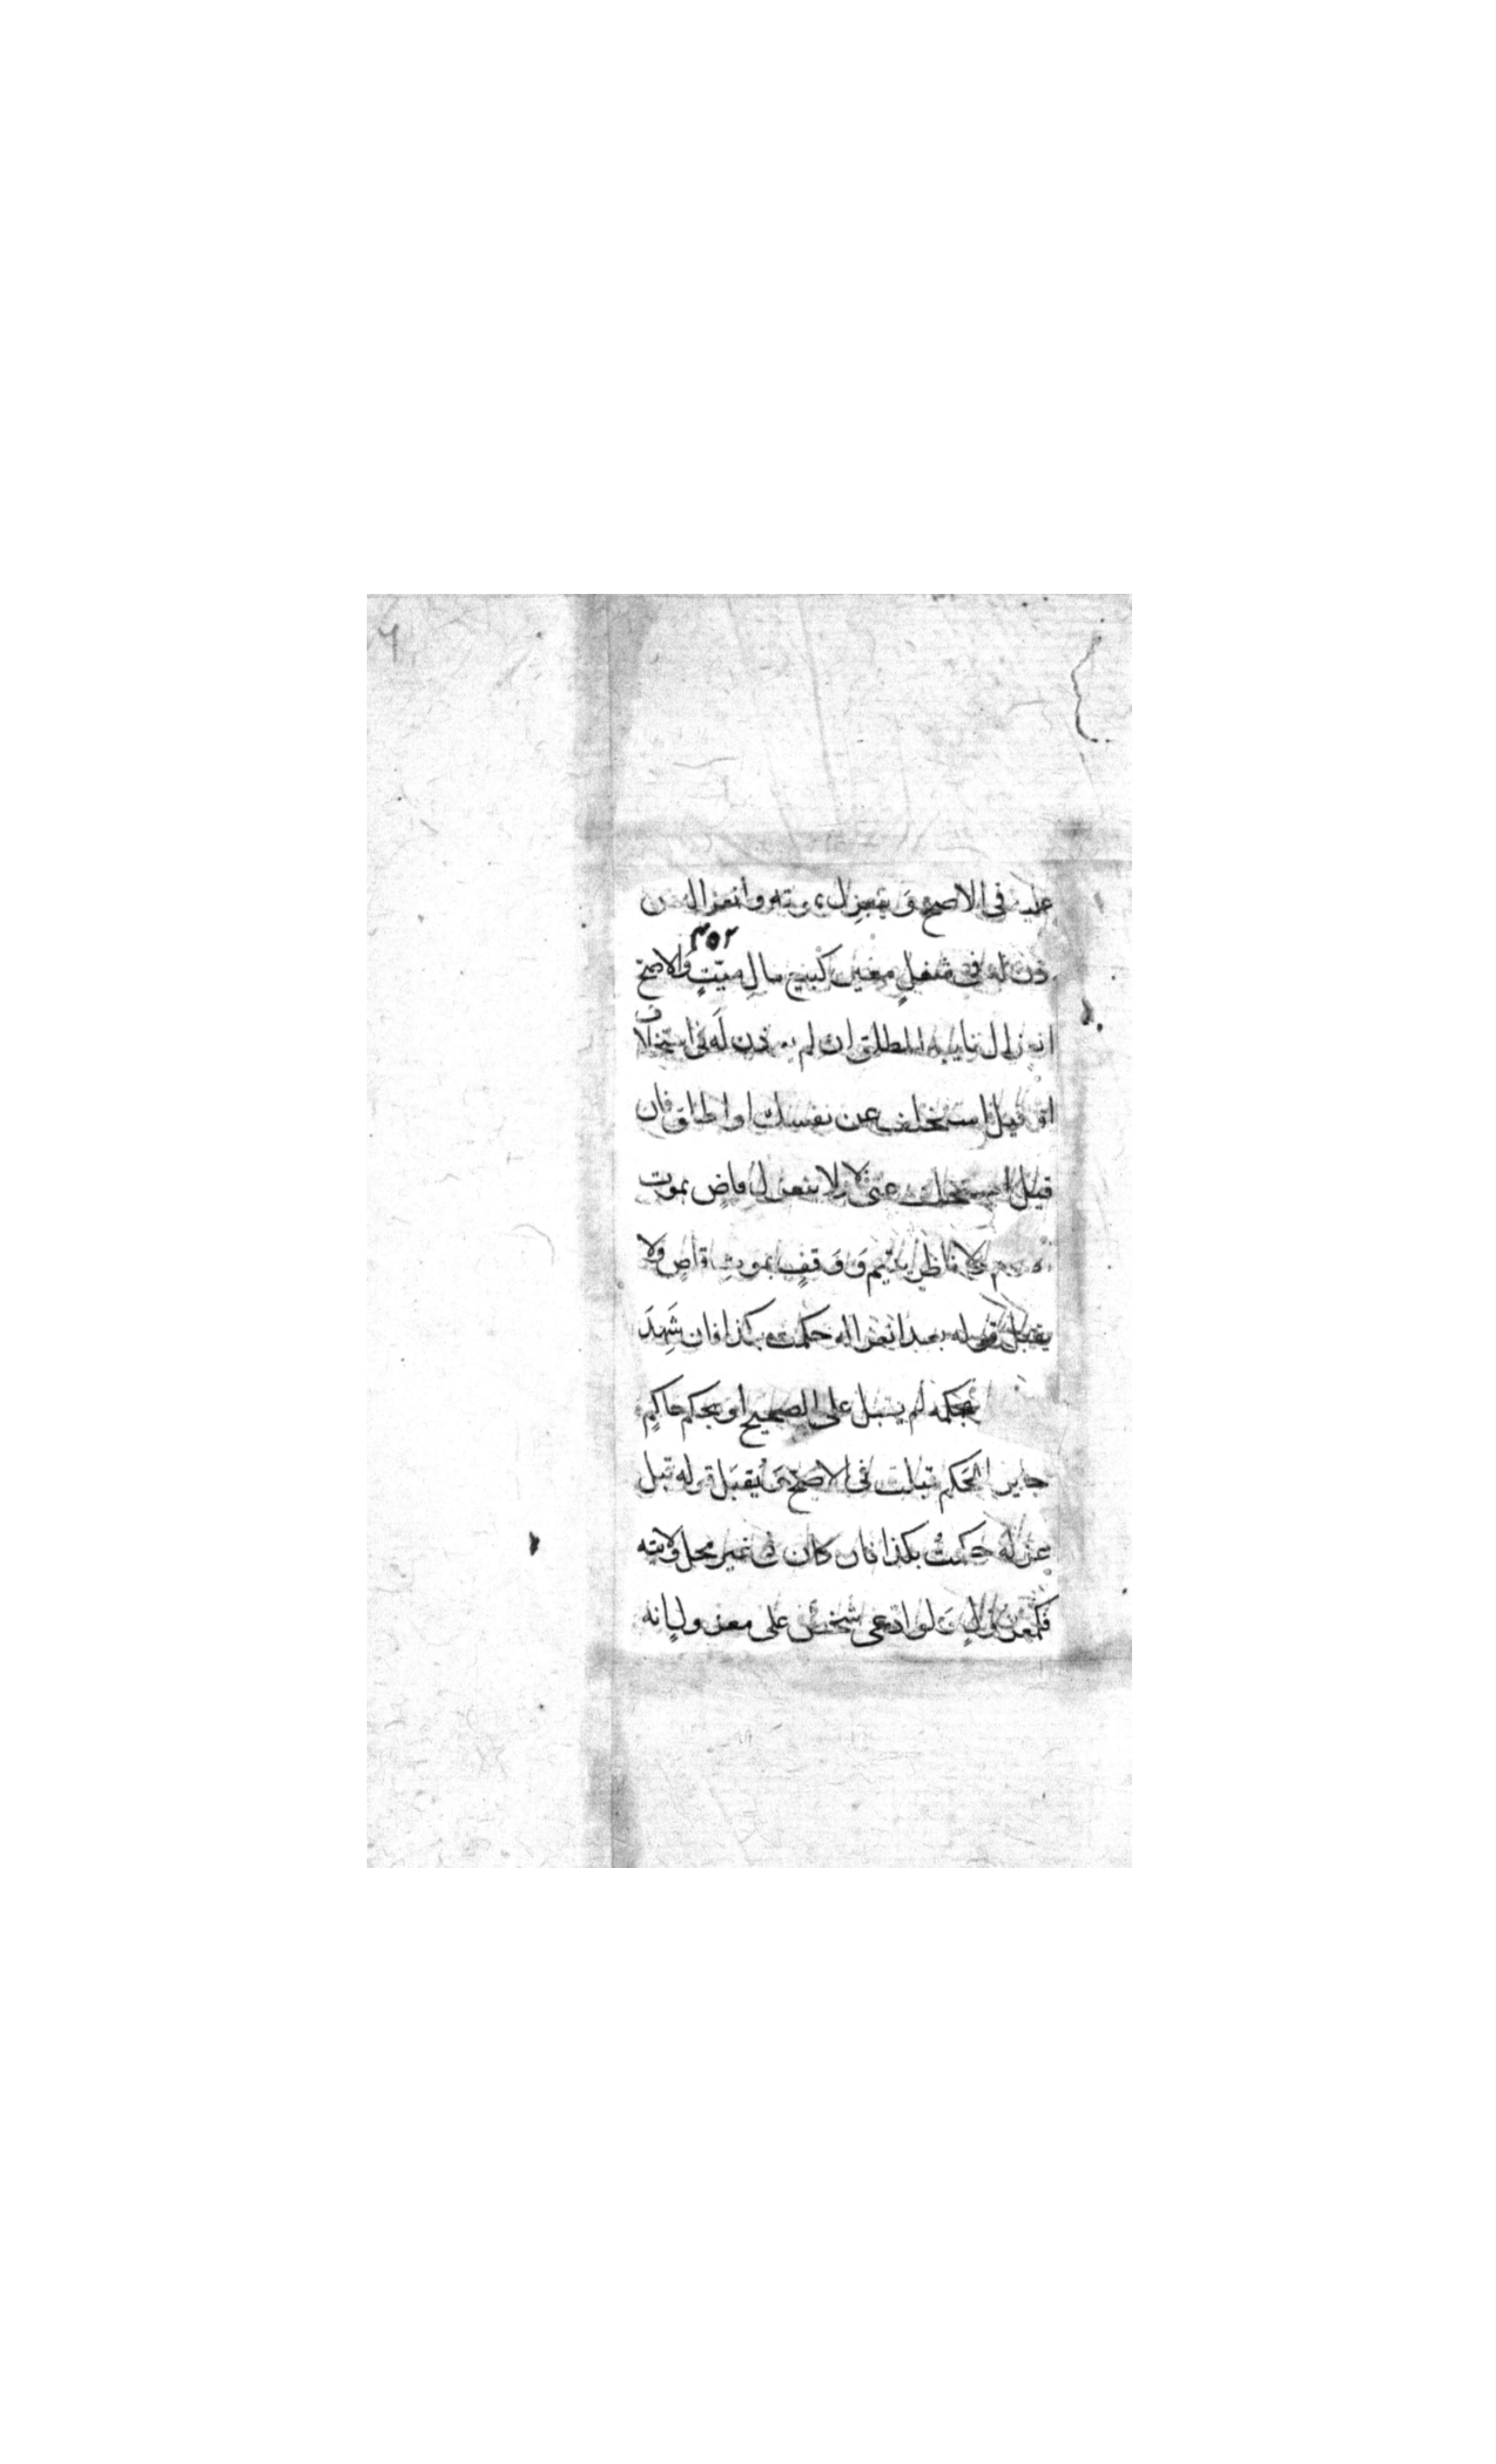 عليه فى الاصح وينعزل بموته وانعزاله من
٣٥٢
اذن له فى شغل معين كبيع مال ميت والاصح
انعزال نايبه المطلق ان لم يوذن له فى استخلاف
او قيل استخلف عن نفسك او اطلق فان
قيل استخلف عنى فلا ولا ينعزل قاض بموت
ولا ناظر يتيم ووقف بموت قاض ولا
يقبل قوله بعد انعزاله حكمت بكذا فان شهد
بحكمه لم يقبل على الصحيح او بحكم حاكم
جاير الحكم قبلت فى الاصح ويقبل قوله قبل
عزله حكمت بكذا فان كان فى غير محل ولايته
فكمعزول ولو ادعى شخص على معزول انه